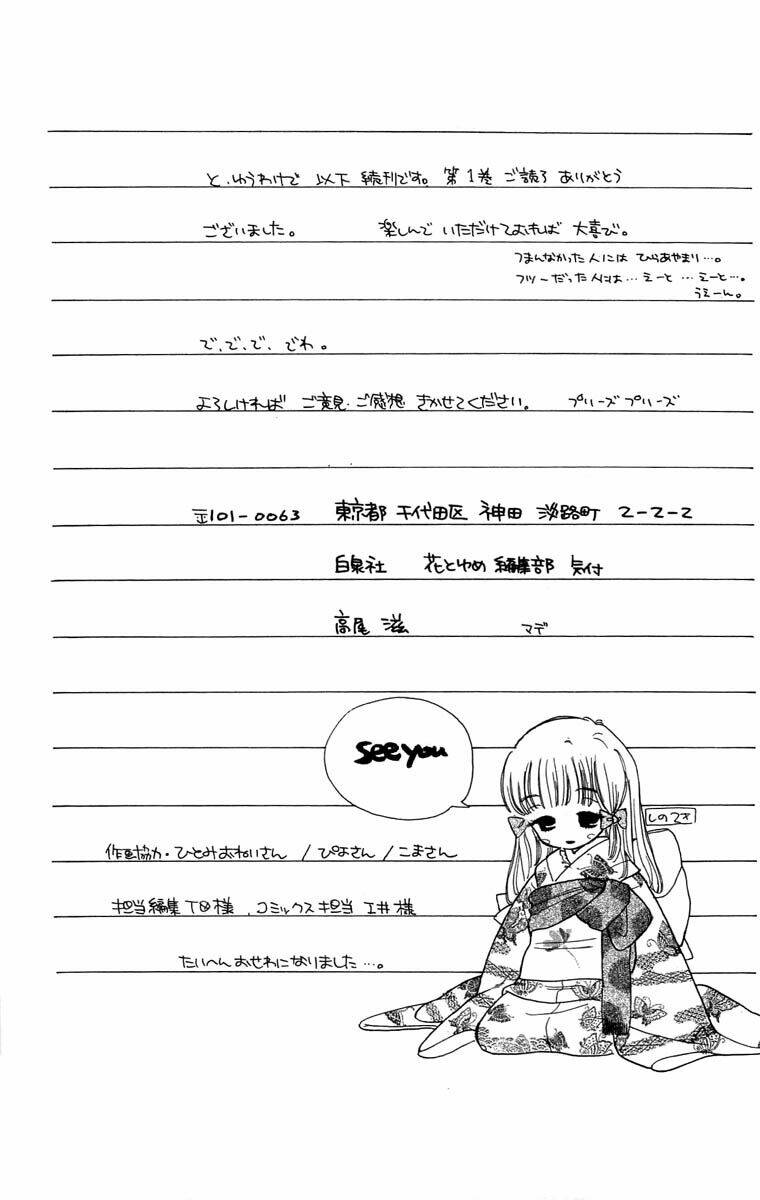 と、ゆうわけで 以下 続刊です。第1巻 ご読了 ありがとう
ございました。 楽しんで いただけておれば 大喜び。
つまんなかった人には ひらあやまり…。
フツーだった人には… えーと … えーと…。
うえーん。
で、で、で、でわ。
よろしければ ご意見・ご感想 きかせてください。 プリーズ プリーズ
〒101-0063 東京都 千代田区 神田 淡路町 2-2-2
白泉社 花とゆめ 編集部 気付
高尾 滋 マデ
see you
しのてさ
作画協力・ひとみおねいさん / ぴよさん / こまさん
担当編集 様、コミックス担当 工井 様
たいへん おせわになりました…。